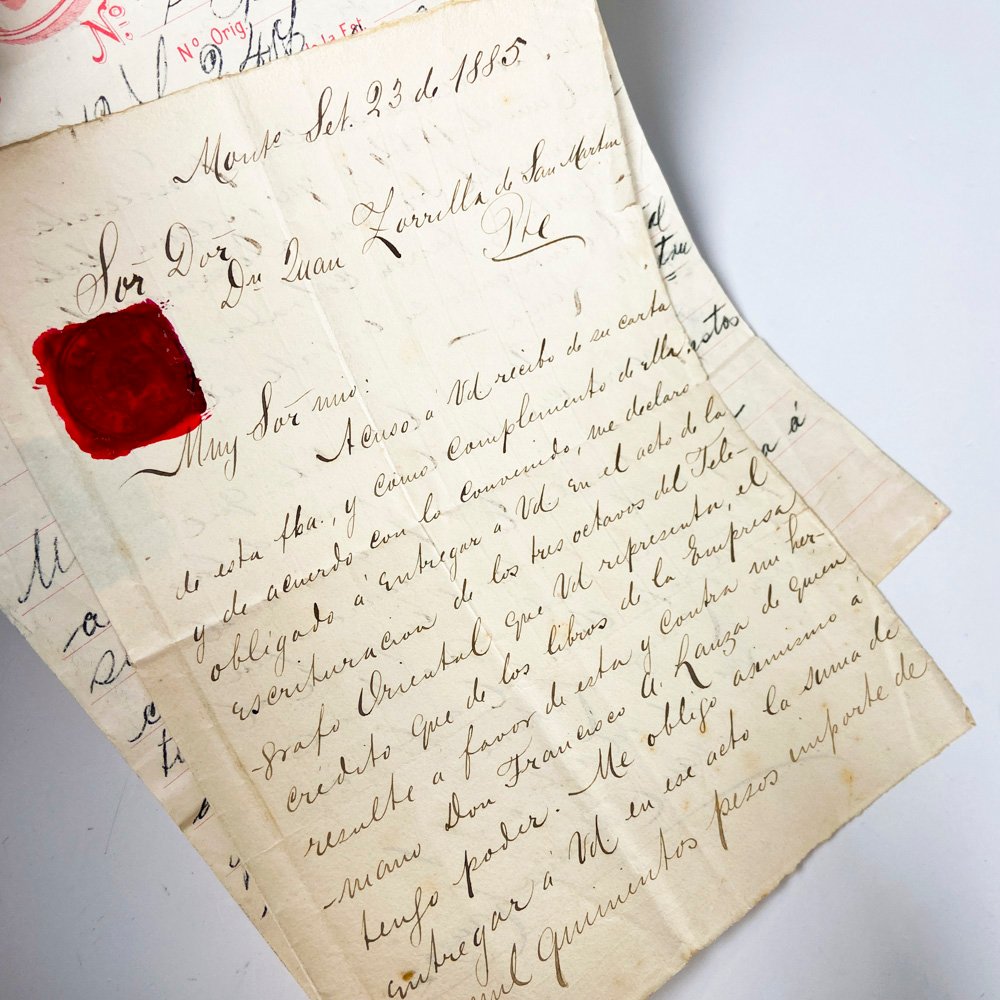 Nº
Nº Orig.
de la Est.
2406
Monto Set. 23 de 1885.
Sor Dor
Dn Juan Zorrilla de San Martin
Pte
Muy Sor mio:
Acuso á Vd recibo de su carta
de esta fha., y como complemento de ella,
y de acuerdo con lo convenido, me declaro
obligado á entregar á Vd en el acto de la
escrituracion de los tres octavos del Telé-
-grafo Oriental que Vd representa, el
crédito que de los libros de la Empresa
resulte a favor de esta y contra mi her-
-mano Don Francisco A. Lanza de quien
tengo poder. Me obligo asimismo á
entregar á Vd en ese acto la suma de
mil quinientos pesos importe de